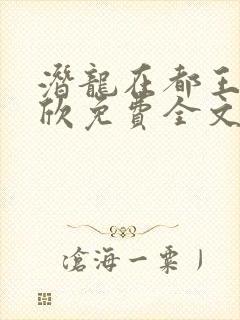 潛龍在都王
欣免費全文
滄海一粟丿